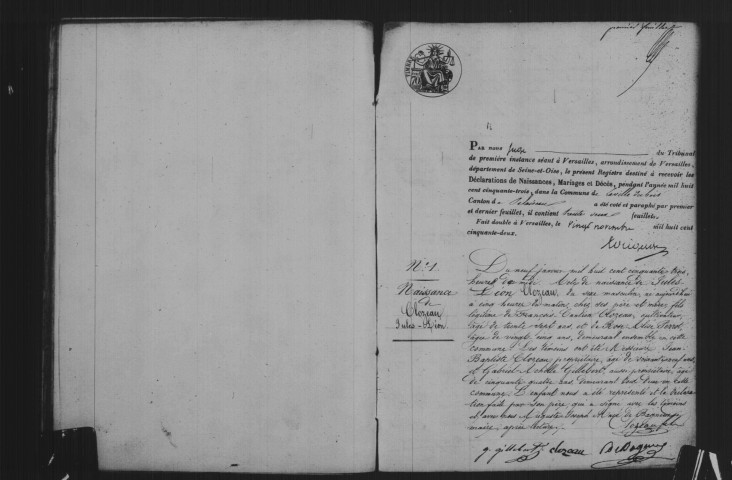 premier feuillet
TIMBRE
PAR nous Juge du Tribunal
de première instance séant à Versailles, arrondissement de Versailles,
département de Seine-et-Oise, le présent Registre destiné à recevoir les
Déclarations de Naissances, Mariages et Décès, pendant l'année mil huit
cent cinquante-trois, dans la Commune de
Canton de Palaiseau a été coté et paraphé par premier
et dernier feuillet, il contient feuillets.
Fait double à Versailles, le vingt novembre mil huit cent
cinquante-deux.
N° 1
Naissance
de
Clozeau
Jules-Léon
Du neuf janvier mil huit cent cinquante trois,
heures de midi Acte de naissance de Jules
Léon Clozeau, du sexe masculin, né aujourd'hui
à cinq heures du matin, chez ses père et mère, fils
légitime de François Clozeau, cultivateur,
âgé de trente sept ans, et de Rose
âgée de vingt cinq ans, demeurant ensemble en cette
commune. Les témoins ont été Messieurs Jean
Baptiste Clozeau propriétaire, âgé de
et Gabriel Achille Gillebert, aussi propriétaire, âgé
de cinquante quatre ans, demeurant tous deux en cette
commune. L'enfant nous a été représenté et la déclara-
tion faite par son père, qui a signé avec les témoins
et avec nous Auguste Joseph de
maire, après lecture.
Clozeau
g. gillebert clozeau